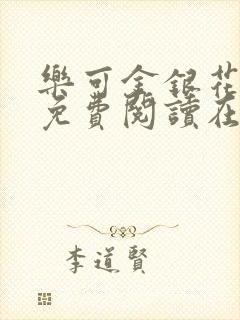 樂可金銀花
免費閱讀在
李道賢